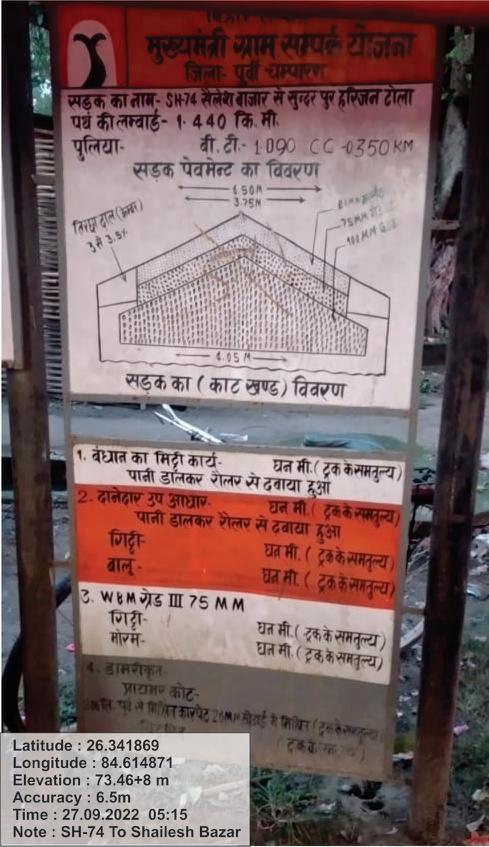 मुख्यमंत्री ग्राम सम्पर्क योजना
जिला- पूर्वी चम्पारण
सड़क का नाम- SH-74 सैलेश बाजार से सुन्दर पुर हरिजन टोला
पथ की लम्बाई- 1.440 कि.मी.
पुलिया- बी.टी.- 1.090 CC-0350 KM
सड़क पेवमेन्ट का विवरण
6.50M
3.75M
3 से 3.5%
75MM
100MM
4.05M
सड़क का (काट खण्ड) विवरण
1. बंधान का मिट्टी कार्य- घन मी.(ट्रक के समतुल्य)
पानी डालकर रौलर से दवाया हुआ
2. दानेदार उप आधार- घन मी.(ट्रक के समतुल्य)
पानी डालकर रौलर से दवाया हुआ
गिट्टी- घन मी.(ट्रक के समतुल्य)
बालु- घन मी.(ट्रक के समतुल्य)
3. WBM ग्रेड III 75 MM
गिट्टी- घन मी.(ट्रक के समतुल्य)
मोरम- घन मी.(ट्रक के समतुल्य)
4. डामरीकृत-
प्रायमर कोट-
Latitude : 26.341869
Longitude : 84.614871
Elevation : 73.46+8 m
Accuracy : 6.5m
Time : 27.09.2022 05:15
Note : SH-74 To Shailesh Bazar